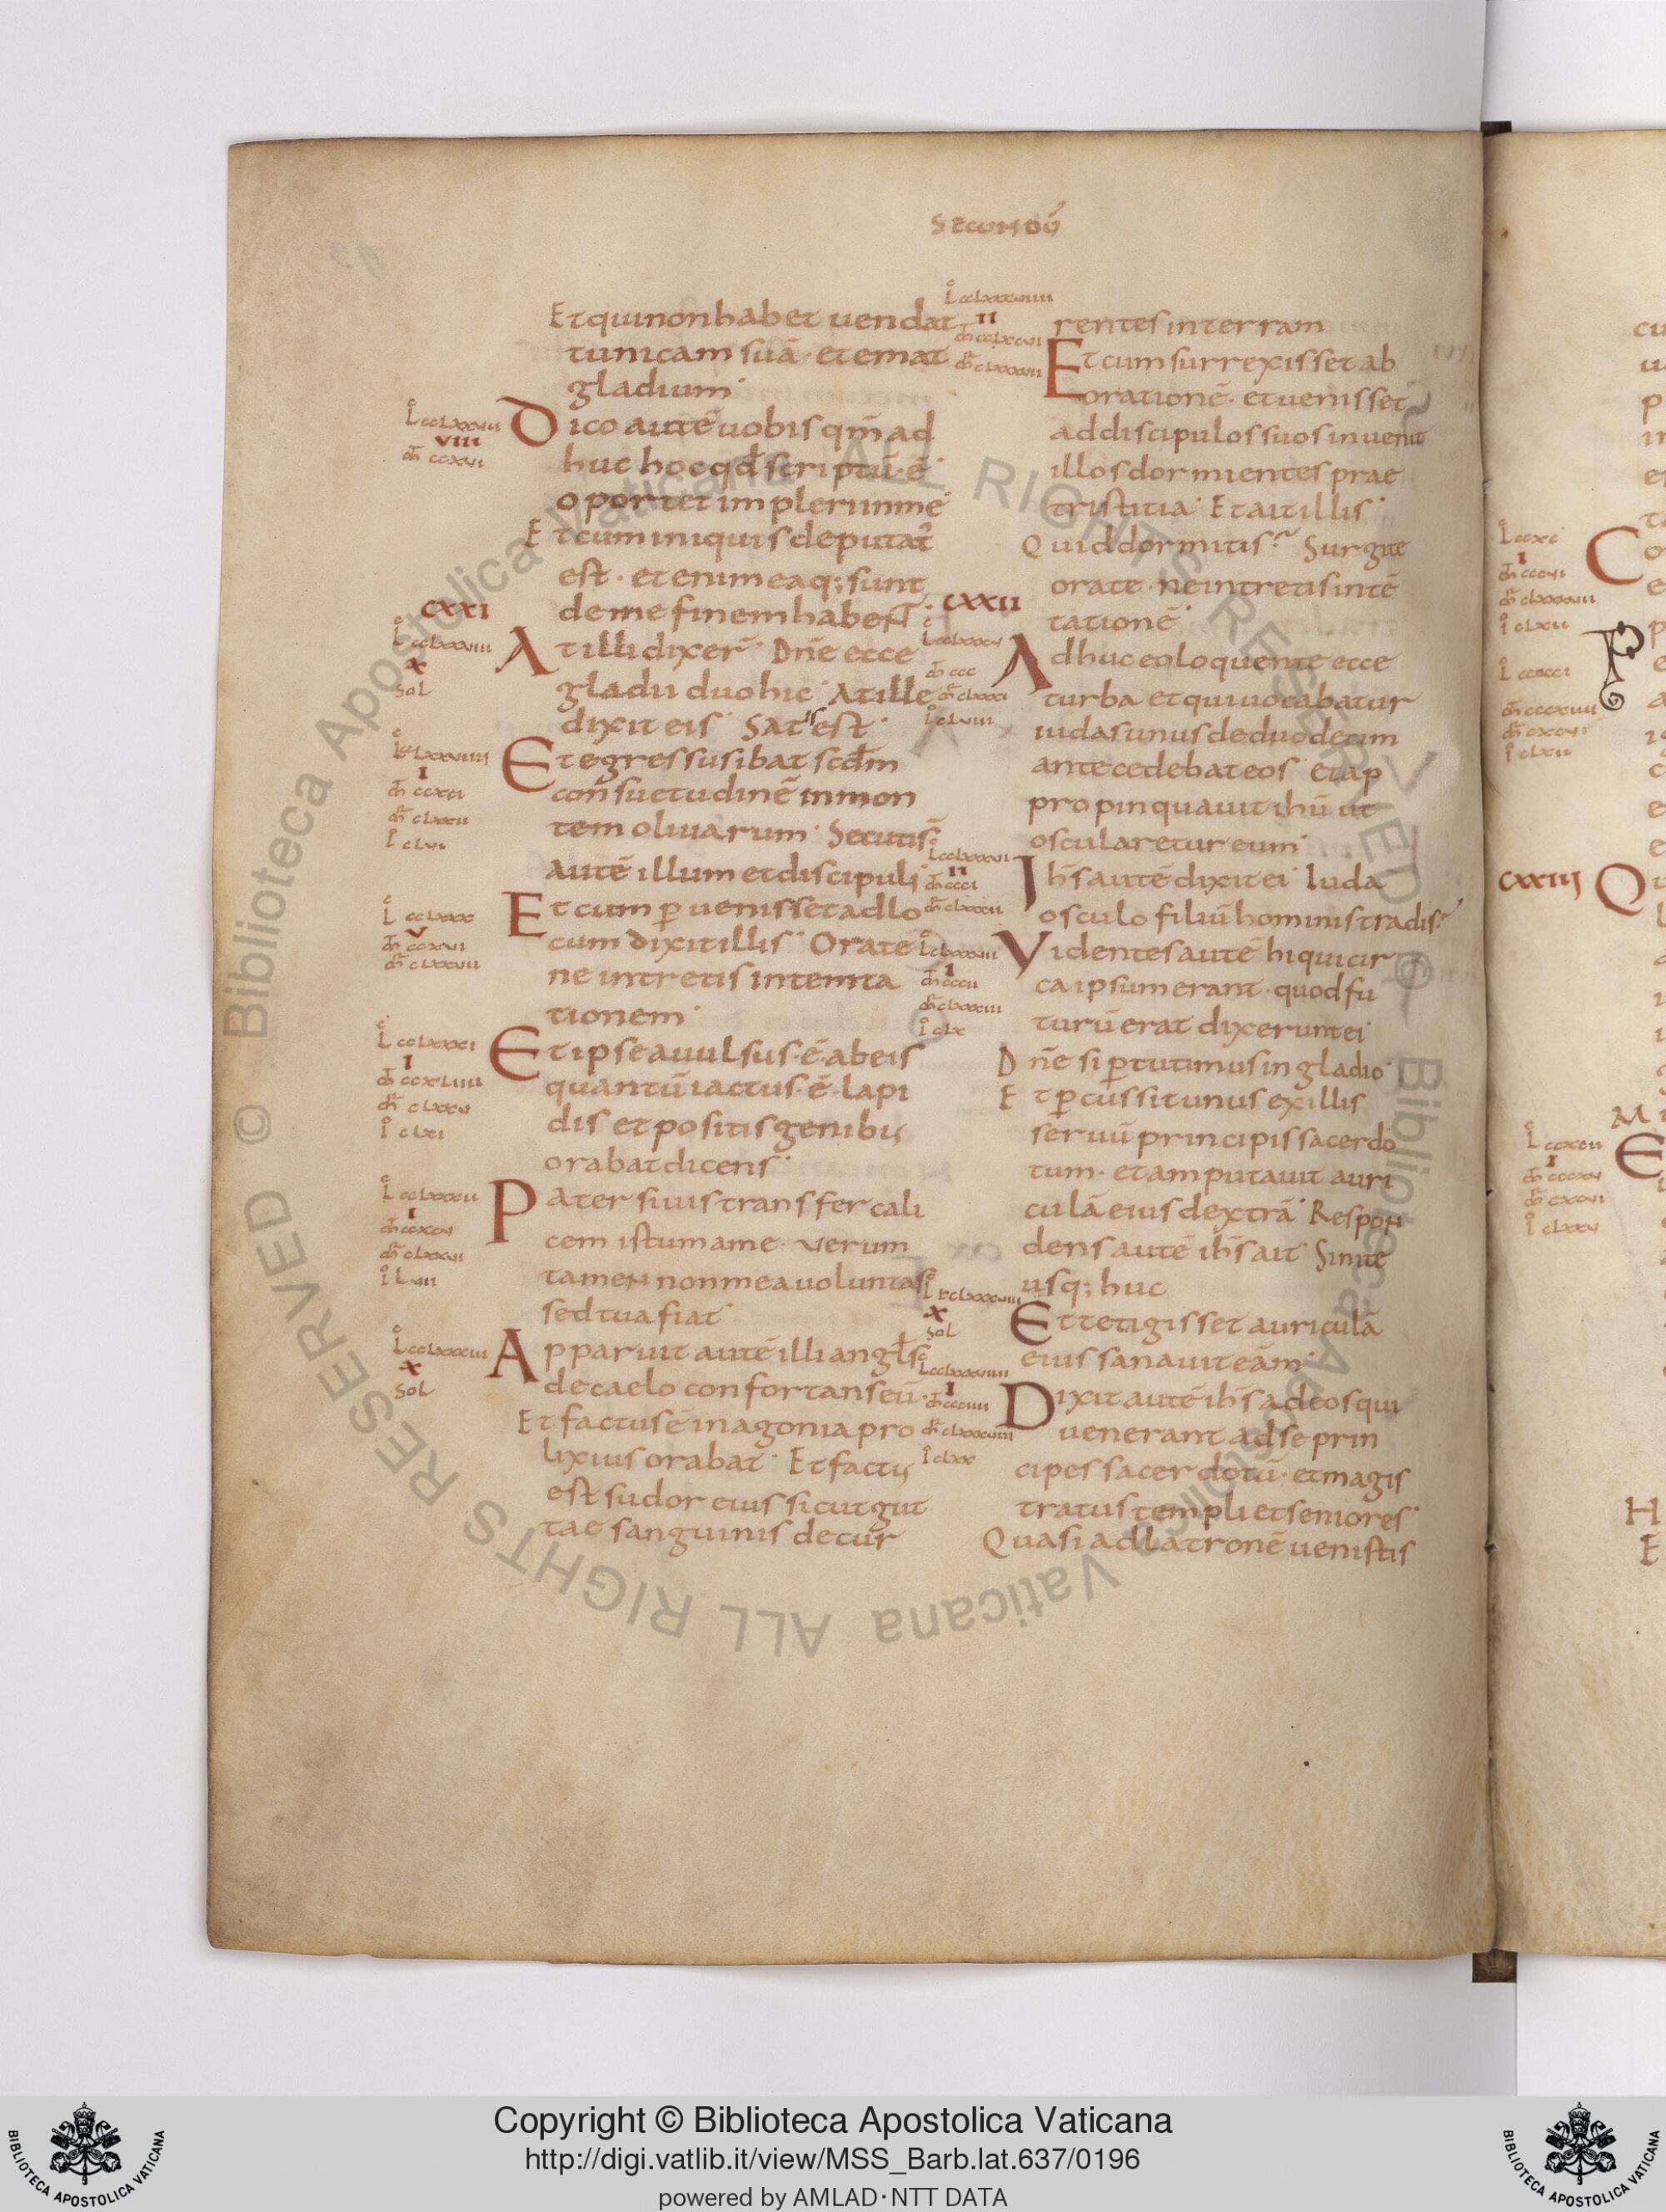 SECUNDŪ
Et qui non habet uendat
tunicam suā · et emat
gladium ·
Dico autē uobis qm̄ ad
huc hoc qd̄ scriptū · ē ·
oportet impleri in me ·
Et cum iniquis deputat᷒
est · et enim ea q; sunt
de me finem habent ·
CXXI
At illi dixer̄ · Dn̄e ecce
gladii duo hic · At ille
dixit eis · Satis est ·
Et egressus ibat scd̄m
consuetudinē in mon
tem oliuarum · Secuti s̄
autē illum et discipuli ·
Et cum ꝑuenisset ad lo
cum dixit illis · Orate
ne intretis in temta
tionem ·
Et ipse auulsus · ē · ab eis
quantū iactus · ē · lapi
dis et positis genibus
orabat dicens ·
Pater si uis transfer cali
cem istum a me · Verum
tamen non mea uoluntas
sed tua fiat ·
Apparuit autē illi angl̄s
de caelo confortans eū ·
Et factus ē in agonia pro
lixius orabat · Et factus
est sudor eius sicut gut
tae sanguinis decur
rentes in terram
Et cum surrexisset ab
orationē · et uenisset
ad discipulos suos inuenit
illos dormientes prae
tristitia · Et ait illis ·
Quid dormitis? Surgite
orate · ne intretis in tē
tationē ·
CXXII
Adhuc eo loquente ecce
turba et qui uocabatur
iudas unus de duodecim
antecedebat eos · et ap
propinquauit ihū ut
oscularetur eum ·
Ihs̄ autē dixit ei · Iuda
osculo filiū hominis tradis?
Videntes autē hi qui cir
ca ipsum erant · quod fu
turū erat dixerunt ei ·
Dn̄e si ꝑcutimus in gladio ·
Et ꝑcussit unus ex illis
seruū principis sacerdo
tum · et amputauit auri
culā eius dextrā · Respon
dens autē ihs̄ ait · Sinite
usq; huc
Et tetigisset auriculā
eius sanauit eām ·
Dixit autē ihs̄ ad eos qui
uenerant ad se prin
cipes sacerdotū · et magis
tratus templi et seniores ·
Quasi ad latronē uenistis
CXXIIJ
Copyright © Biblioteca Apostolica Vaticana
http://digi.vatlib.it/view/MSS_Barb.lat.637/0196
powered by AMLAD·NTT DATA
BIBLIOTECA APOSTOLICA VATICANA
BIBLIOTECA APOSTOLICA VATICANA